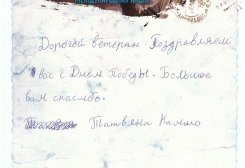 Дорогой ветеран Поздравляем
вас с Днём Победы. Большое
вам спасибо.
Татьяна